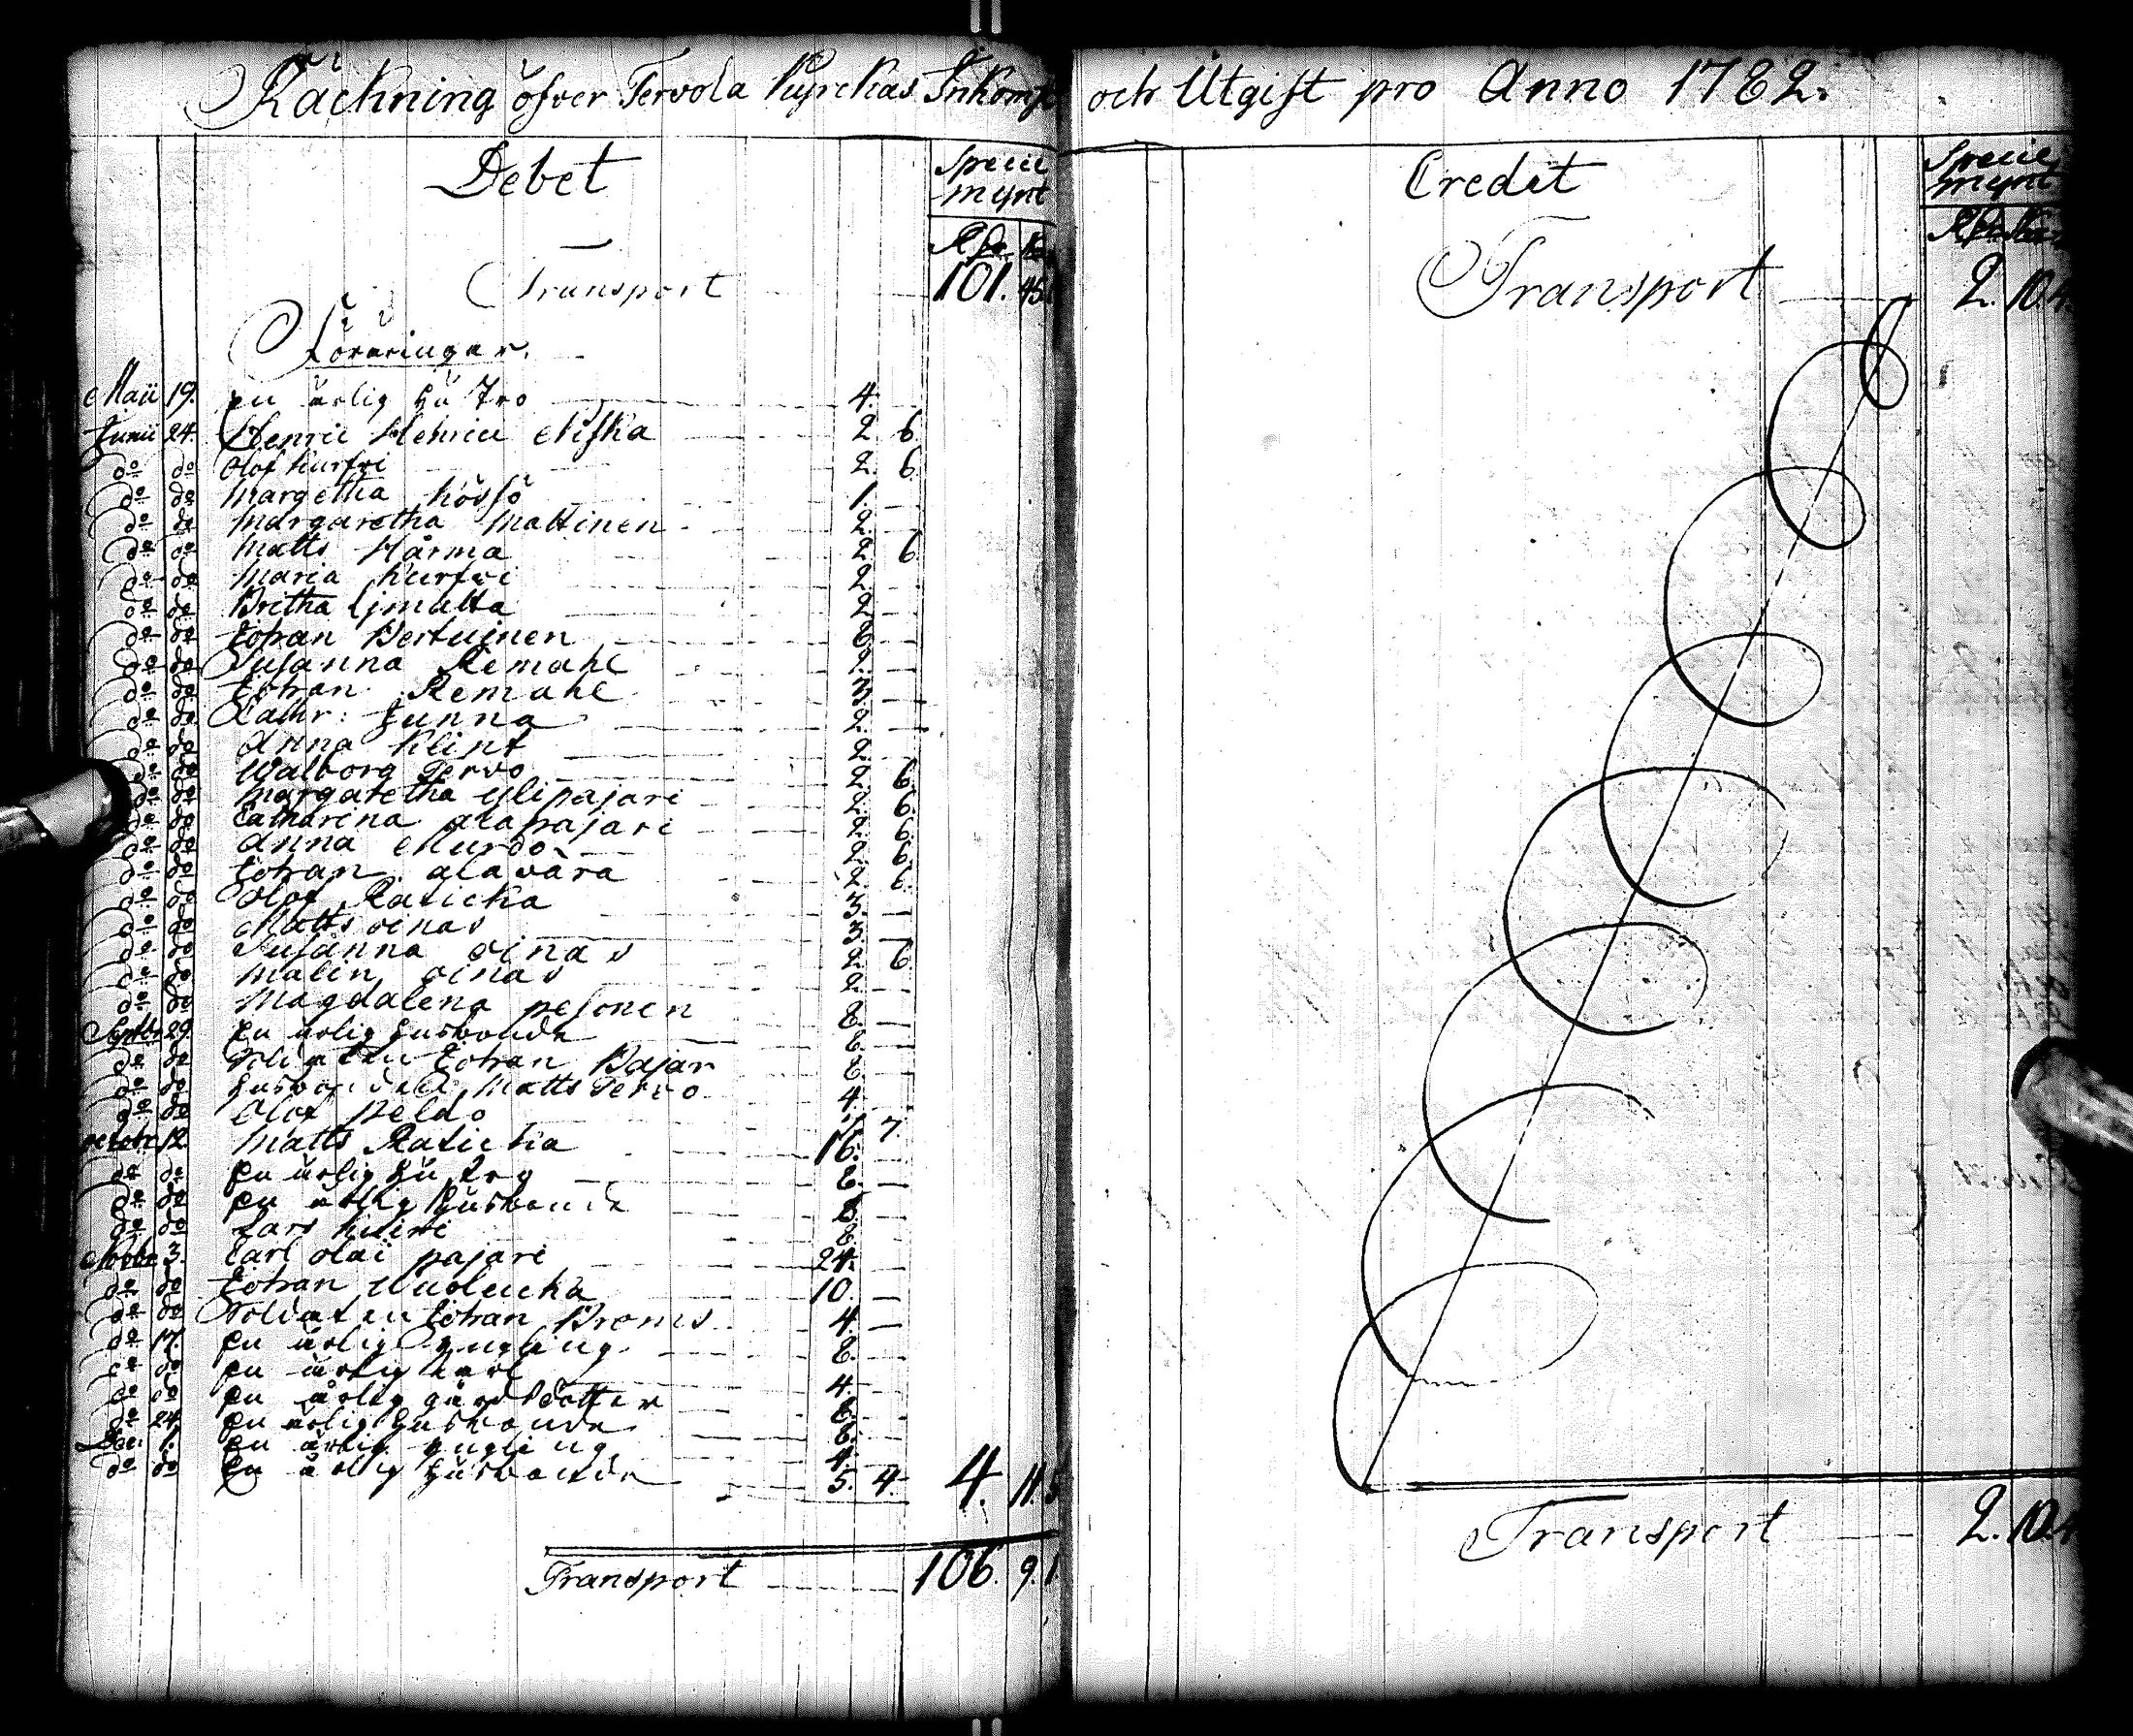 Räckning öfver Tervola Kyrckas Inkomst och Utgift pro Anno 1782.
Debet
Specie
mynt
Rdr
Transport 101. 45
Föräringar.
Maii 19. en ärlig hustro 4.
Junii 24. Henric Henrici Niska 2 6.
do do Olof Kurtti 2. 6.
do do Margetha 1. —
do do Margaretha Mattinen 2. —
do do Matts Härmä 2. 6.
do do Maria Kurtti 2. —
do do Britha Ijmatta 2 —
do do Johan 6. —
do do Susanna Remahl 2. —
do do Johan Remahl 3. —
do do Cathr: Junna 2. —
do do Anna Klint 2. —
do do Walborg Tervo 2. 6.
do do Margaretha Ylipajari 2. 6.
do do Catharina Alapajari 2. 6.
do do Anna 2. 6.
do do Johan Alavåra 2. 6.
do do Olof Raticka 3. —
do do Matts Oinas 3. —
do do Susanna Oinas 2. 6.
do do Malin Oinas 2. —
do do Magdalena Pesonen 8. —
Septbr 29. en ärlig husbonde 6. —
do do Soldaten Johan Bajar 8. —
do do husbonden Matts Tervo 4. —
do do Olof Peldo 7.
Octobr 12. Matts Raticka 16. —
do do en ärlig hustro 8. —
do do en ärlig husbonde 8. —
do do Lars 8. —
Novbr 3. Carl Olai Pajari 24. —
do do Johan 10. —
do do Soldaten Johan Broms 4. —
do 17. en ärlig yngling 8. —
do do en ärlig karl 4. —
do do en ärlig gårds dotter 6. —
do 24. en ärlig husbonde 6. —
Dec: 1. en ärlig yngling 4. —
do do en ärlig husbonde 5. 4. 4. 11. 5
Transport 106. 9. 1
Credit
Specie
mynt
Transport 2. 10.4
Transport 2. 10.4